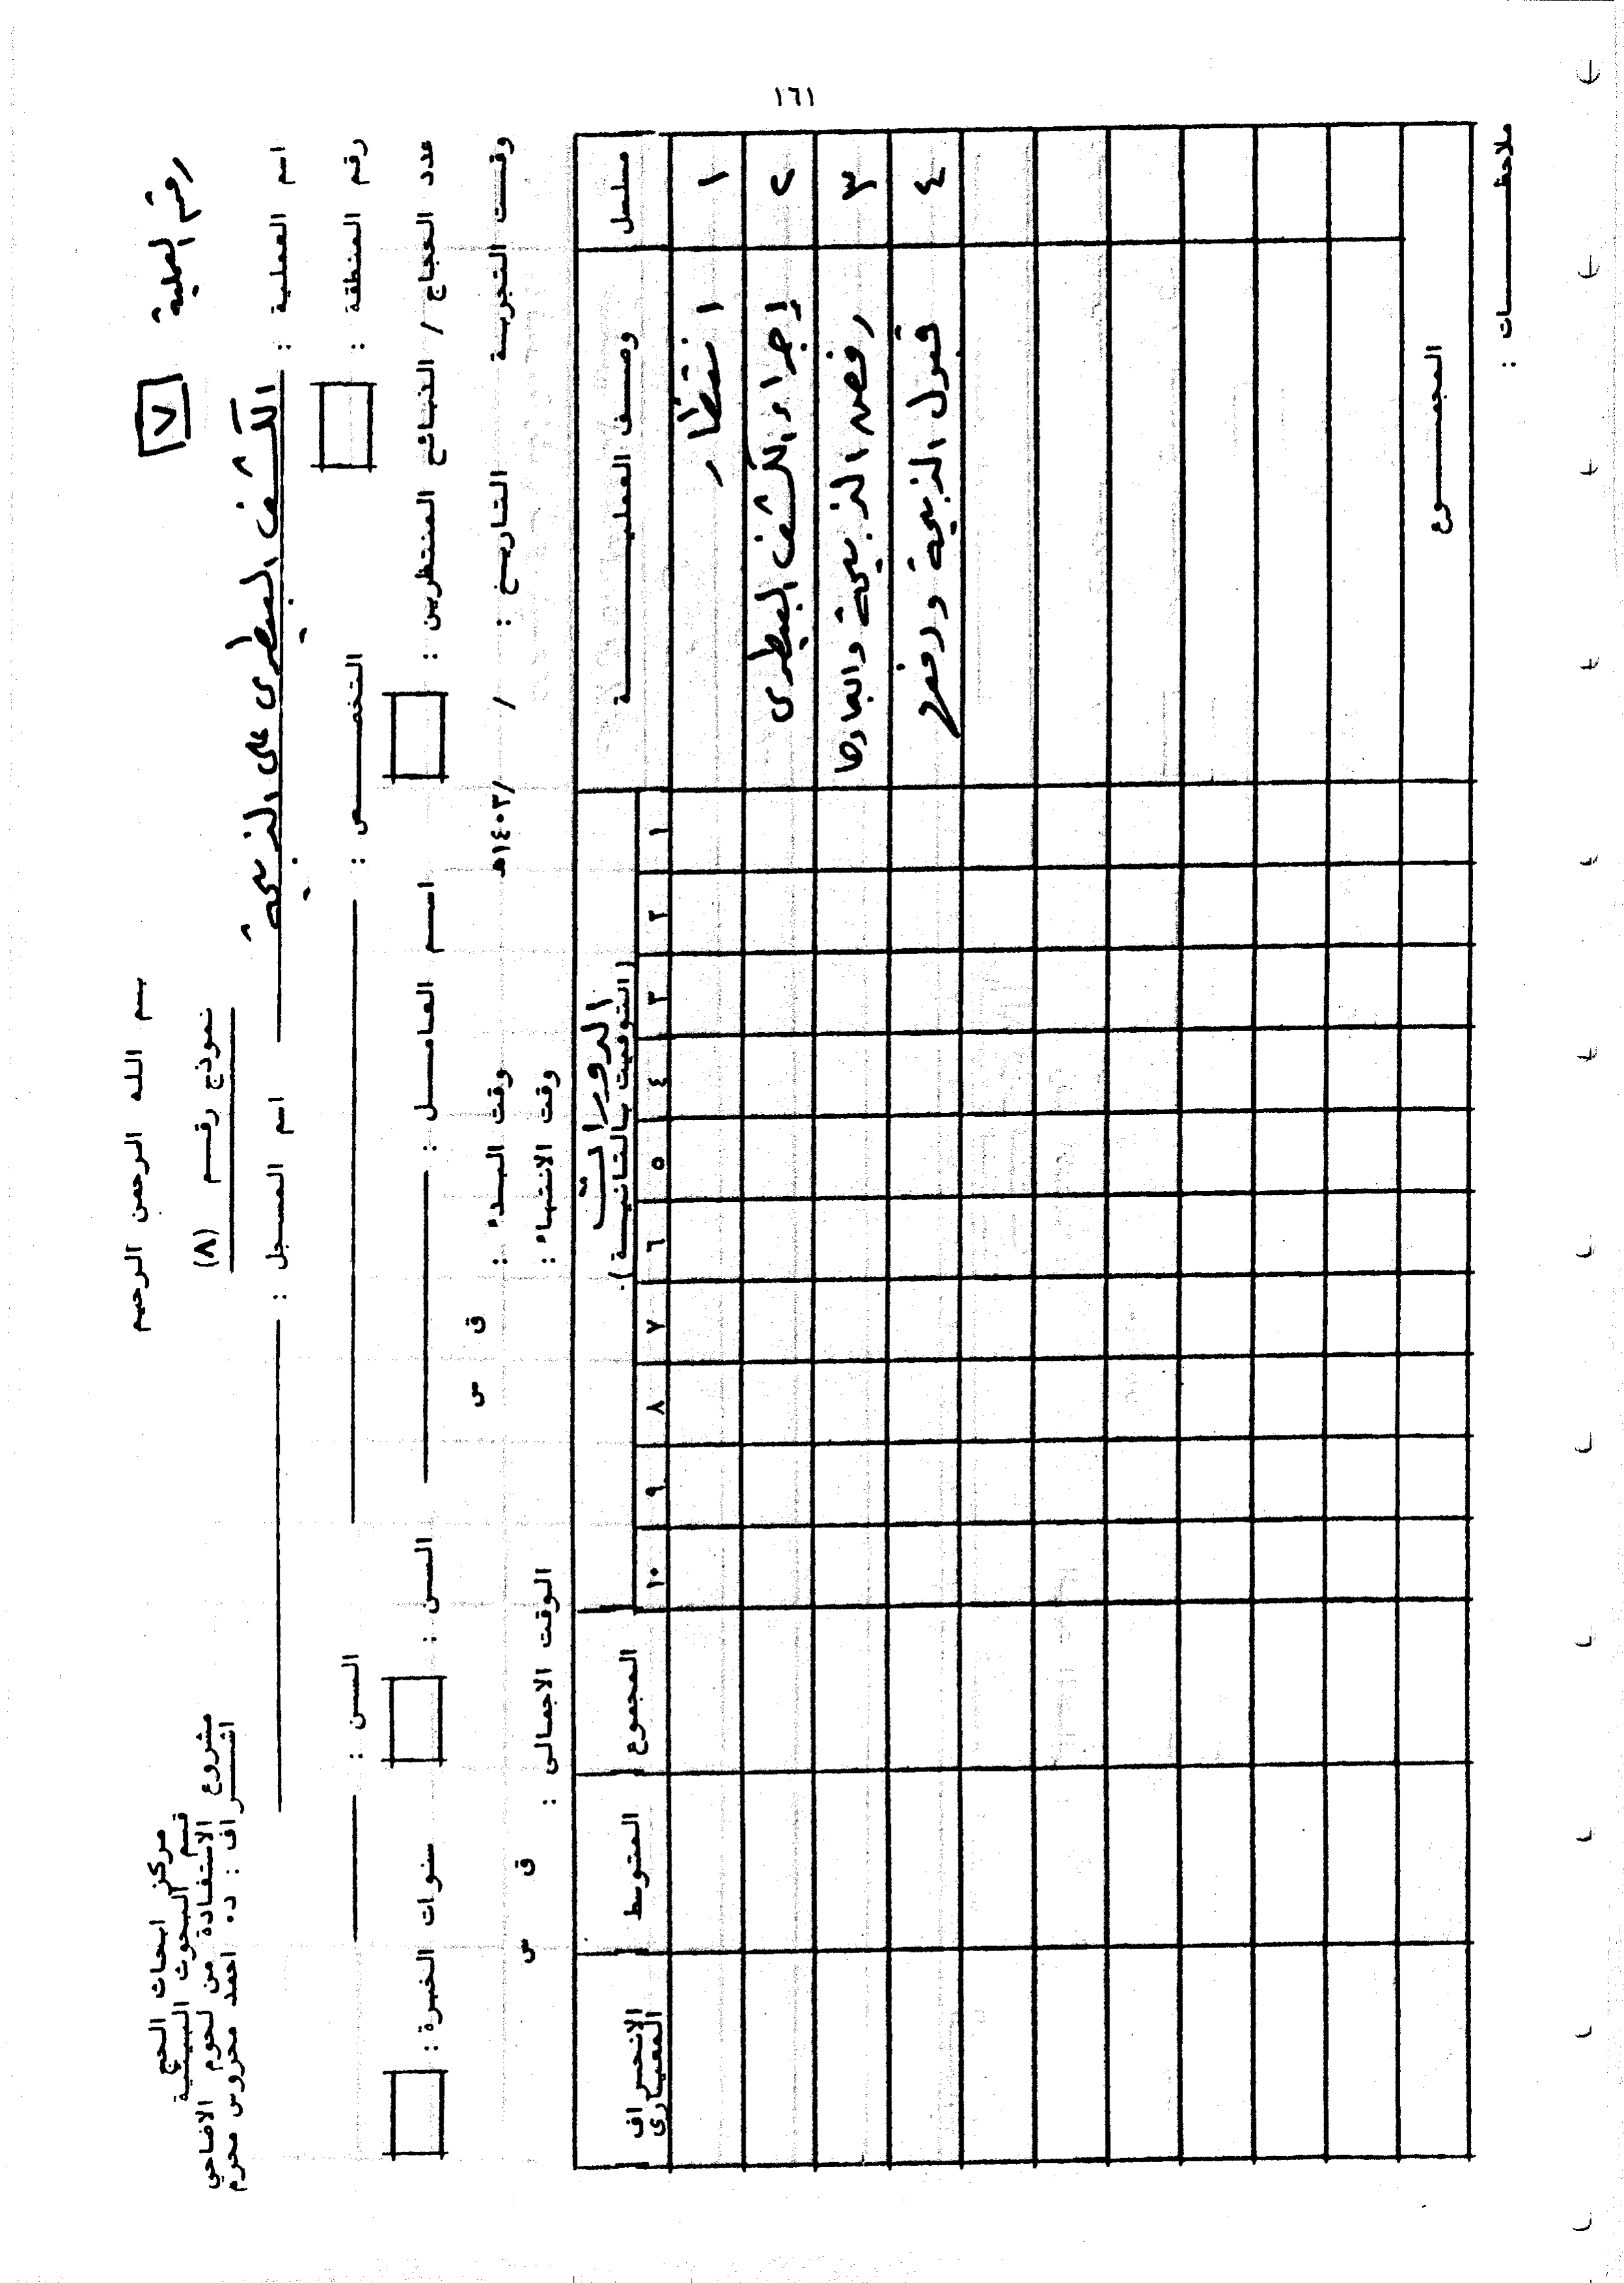 ١٦١
بسم الله الرحمن الرحيم
نموذج رقم (٨)
مركز ابحاث الحج
قسم البحوث البيئية
مشروع الاستفادة من لحوم الاضاحي
اشراف : د. احمد محروس محرم
رقم العملية ٧
اسم العملية : الكشف البيطرى على الذبيحة اسم المسجل :
رقم المنطقة : التخصص : السن :
عدد الحجاج / الذبائح المنتظرين : اسم العامل : السن : سنوات الخبرة :
وقت التجربة التاريخ : / /١٤٠٣هـ وقت البدء : ق س
وقت الانتهاء : الوقت الاجمالى : ق س
مسلسل وصف العملية الدورات (التوقيت بالثانية). المجموع المتوسط الانحراف المعيارى
١ ٢ ٣ ٤ ٥ ٦ ٧ ٨ ٩ ١٠
١ انتظار
٢ إجراء الكشف البيطرى
٣ رفض الذبيحة وابعادها
٤ قبول الذبيحة ودفع
المجموع
ملاحظات :